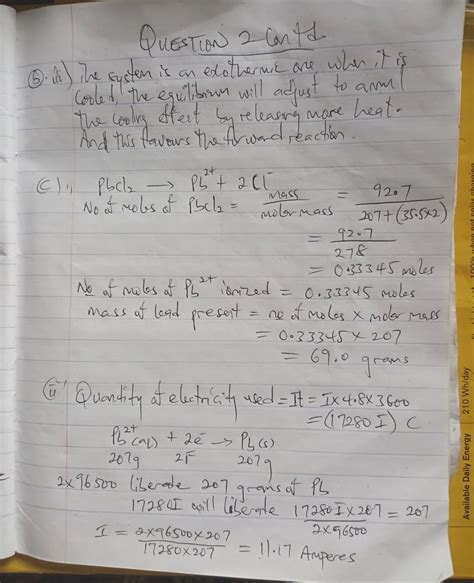 QUESTION 2 Contd
(b). iii) The system is an exothermic one when it is
cooled, the equilibrium will adjust to annul
the cooling effect by releasing more heat.
And this favours the forward reaction.
(C) i, PbCl2 → Pb2+ + 2Cl-
No of moles of PbCl2 = mass / molar mass = 92.7 / 207 + (35.5x2)
= 92.7 / 278
= 0.33345 moles
No of moles of Pb2+ ionized = 0.33345 moles
mass of lead present = no of moles x molar mass
= 0.33345 x 207
= 69.0 grams
(ii) Quantity of electricity used = It = I x 4.8 x 3600
= (17280 I) C
Pb2+(aq) + 2e- → Pb(s)
207g 2F 207g
2x96500 liberate 207 grams of Pb
17280I will liberate 17280I x 207 / 2x96500 = 207
I = 2x96500x207 / 17280x207 = 11.17 Amperes
Available Daily Energy 210 Wh/day